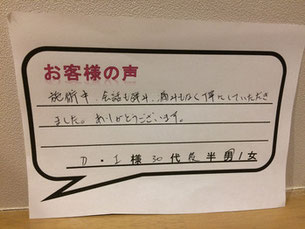 お客様の声
施術中、会話も弾み、痛みもなく楽にしていただき
ました。ありがとうございます。
D・I 様 30代後半 男/女